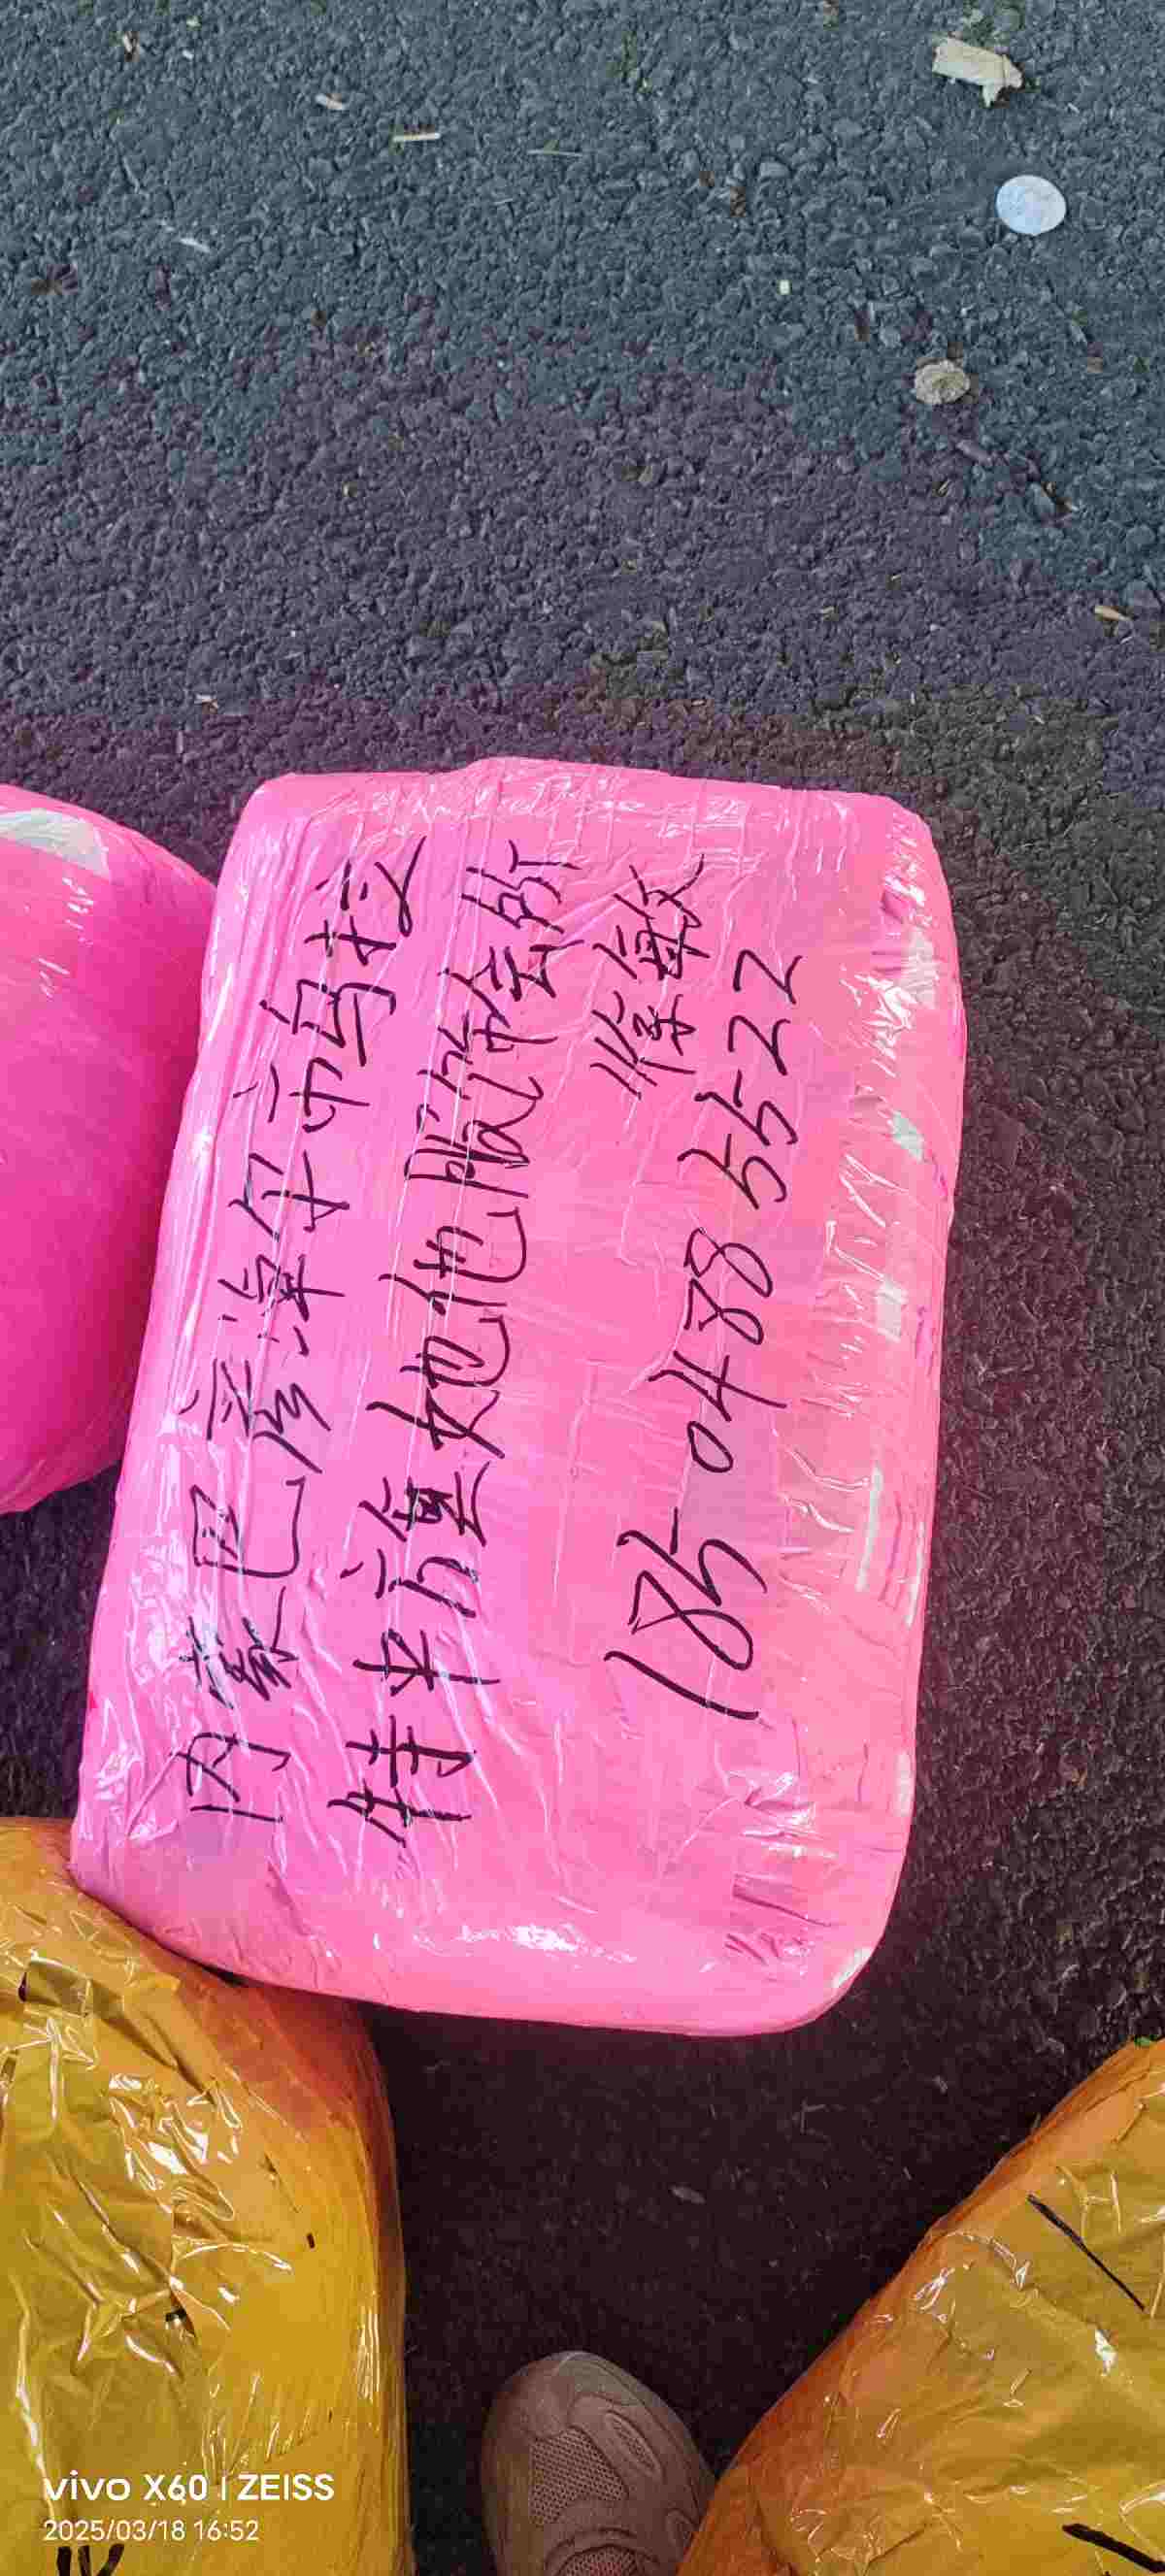 内蒙巴彦淖尔市乌拉
特中旗她他服饰会所
徐敏
185 0488 5522
vivo X60 | ZEISS
2025/03/18 16:52